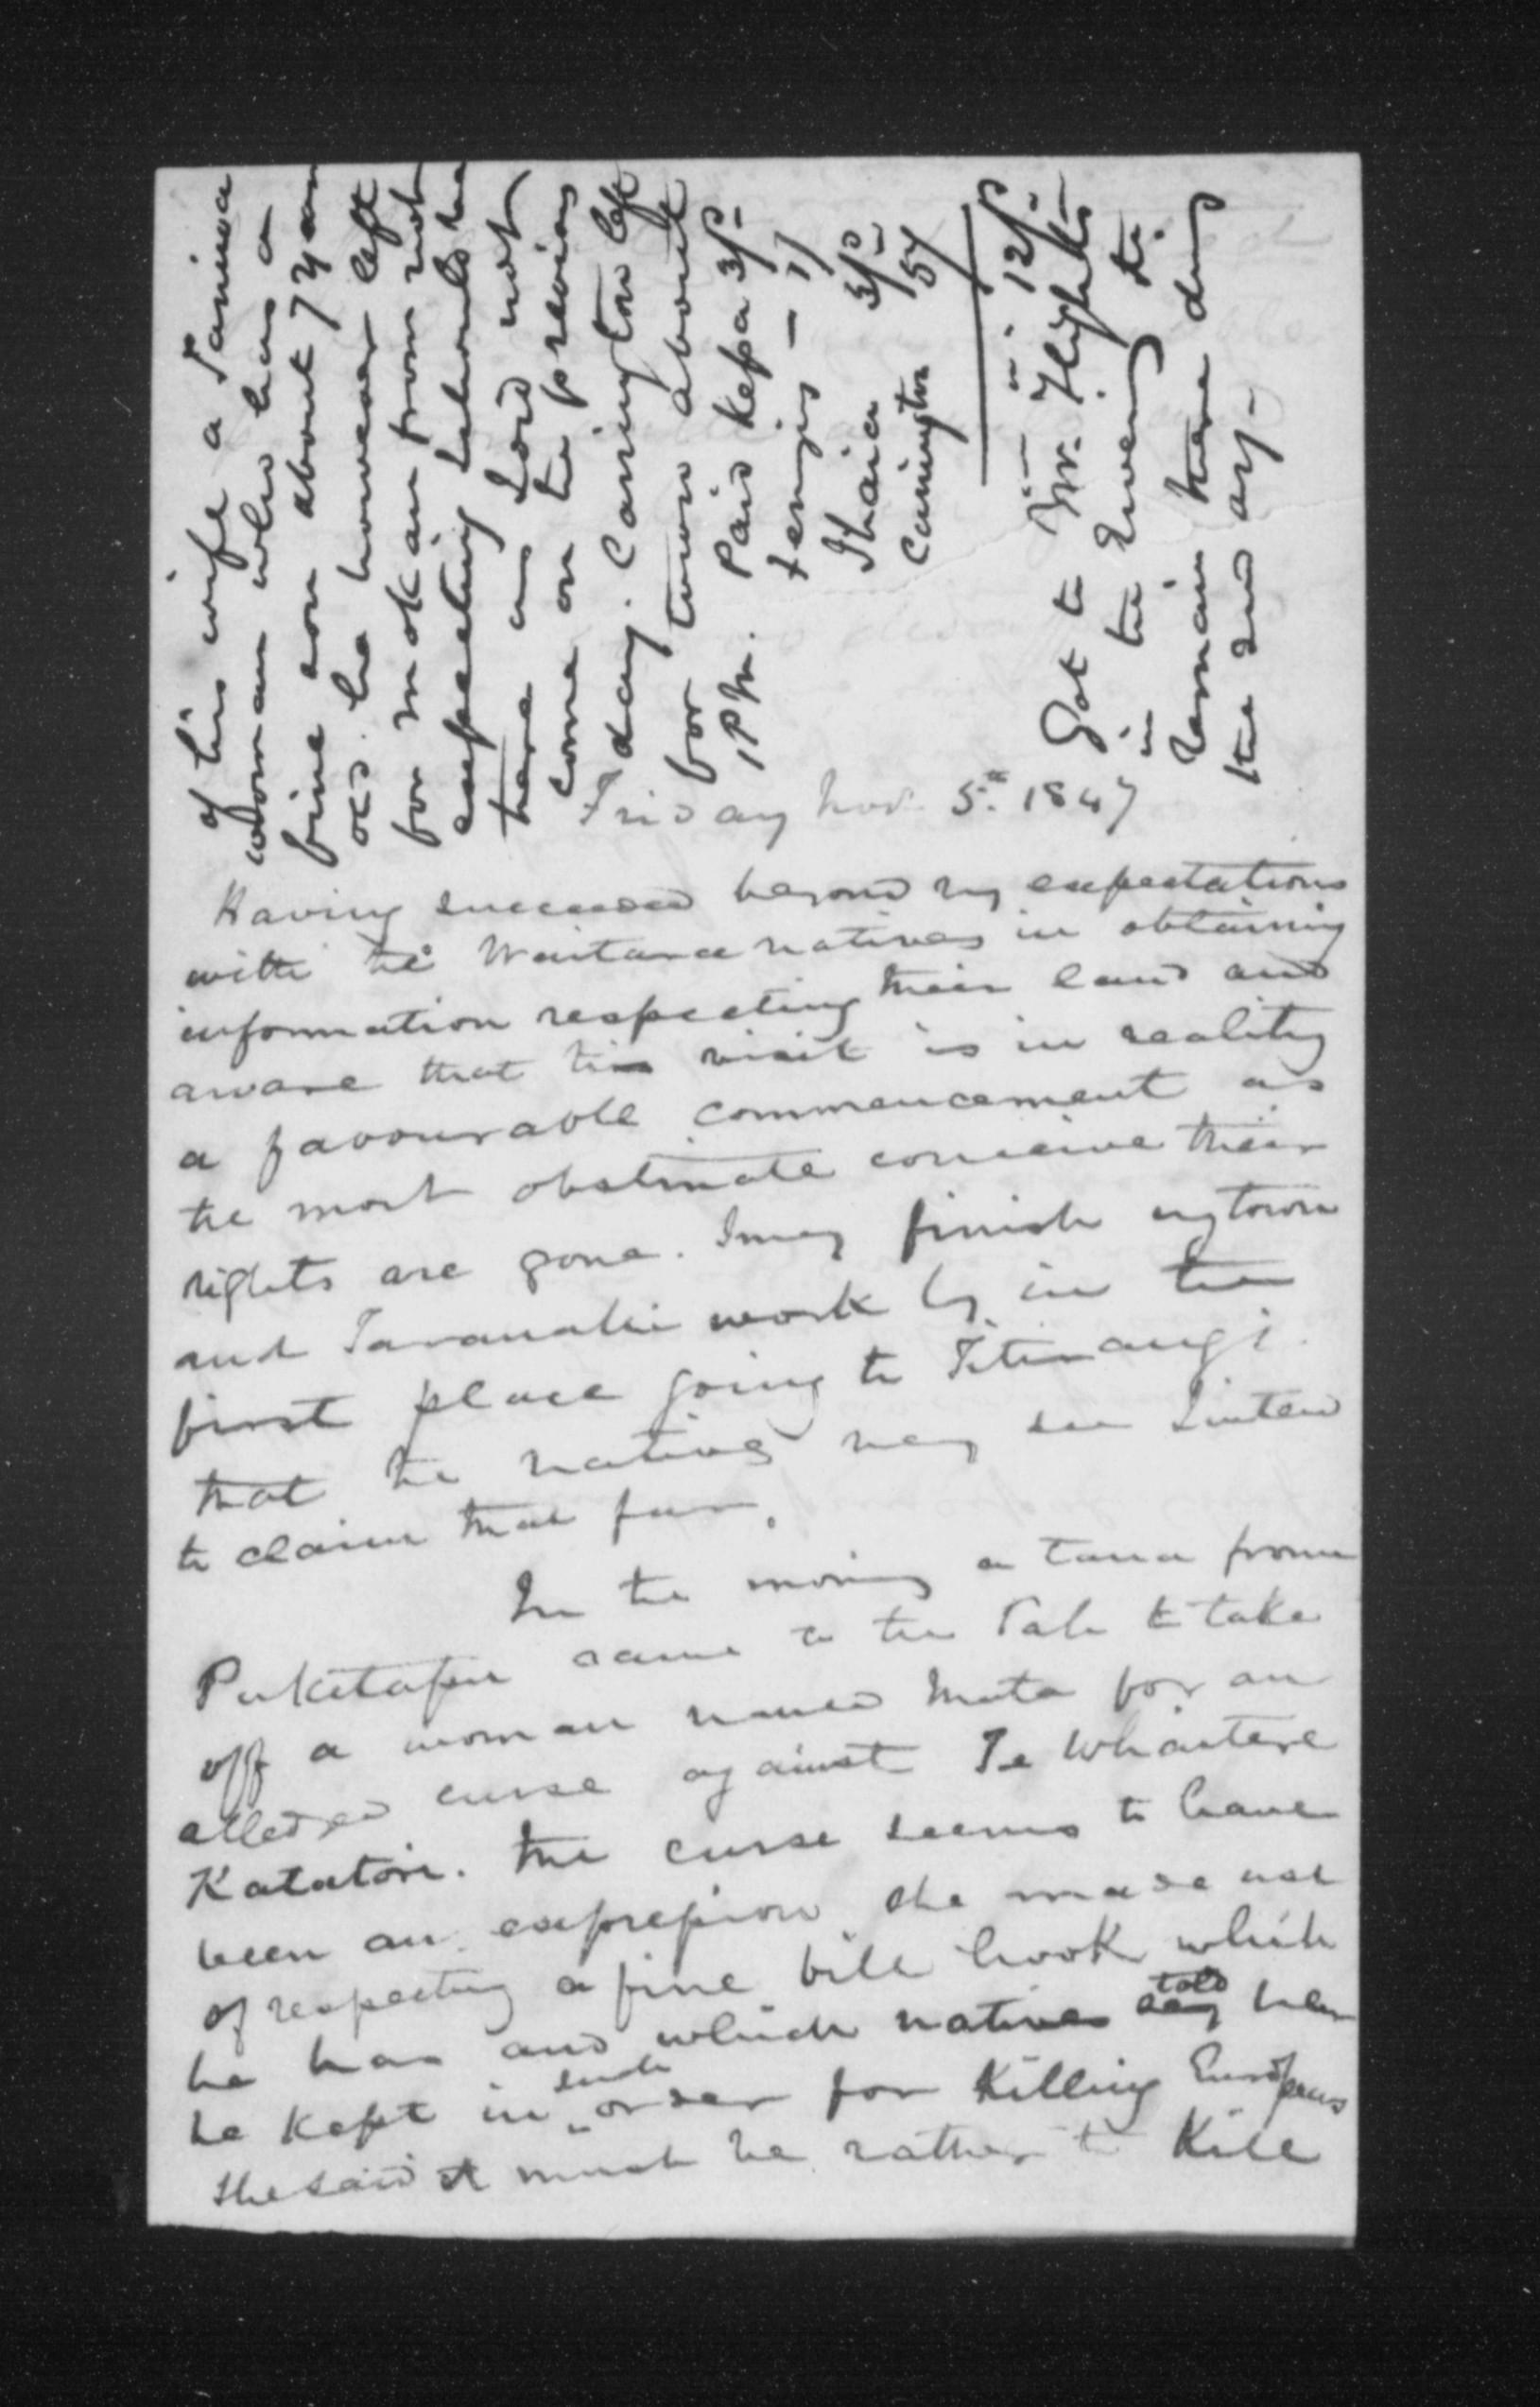 of his wife a Taniwa
woman who has a
fine son about 7 years
old. he however left
for Mokau from not
expecting I should be
here as I did not
come on the previous
day. Carington left
for town about
1 PM. Paid Kepa 3/-
Hengis - 1/
Ihaia 3/-
Carington 5/
12/-
Got to Mr. Flights
in the Evening to
remain there during
the 2nd day -
Friday Nov. 5th. 1847
Having succeeded beyond my expectations
with the Waitara natives in obtaining
information respecting their land and
aware that this visit is in reality
a favourable commencement as
the most obstinate conceive their
rights are gone. I may finish my town
and Taranaki work by in the
first place going to Titirangi
that the natives may see I intend
to claim that far.
In the morning a taua from
Puketapu came to the Pah to take
off a woman named Mata for an
alledged curse against Te Whaitere
Katatore. The curse seems to have
been an expression she made use
of respecting a fine bill hook which
he has and which natives say told her
he kept in such order for killing Europeans
she said it must be rather to kill